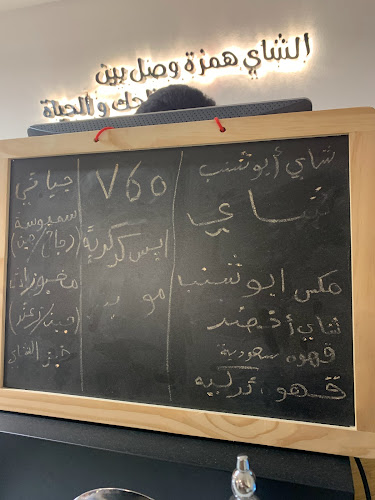 الشاي همزة وصل بين
والحياة
شاي أبو تشنب
شاي
مكس ابو تشنب
شاي أخضر
قهوه سعودية
قهوه تركيه
V60
ايس كركدية
جباتي
سمبوسة
(دجاج/جبن)
مخبوزات
(جبن/زعتر)
خبز الشاي